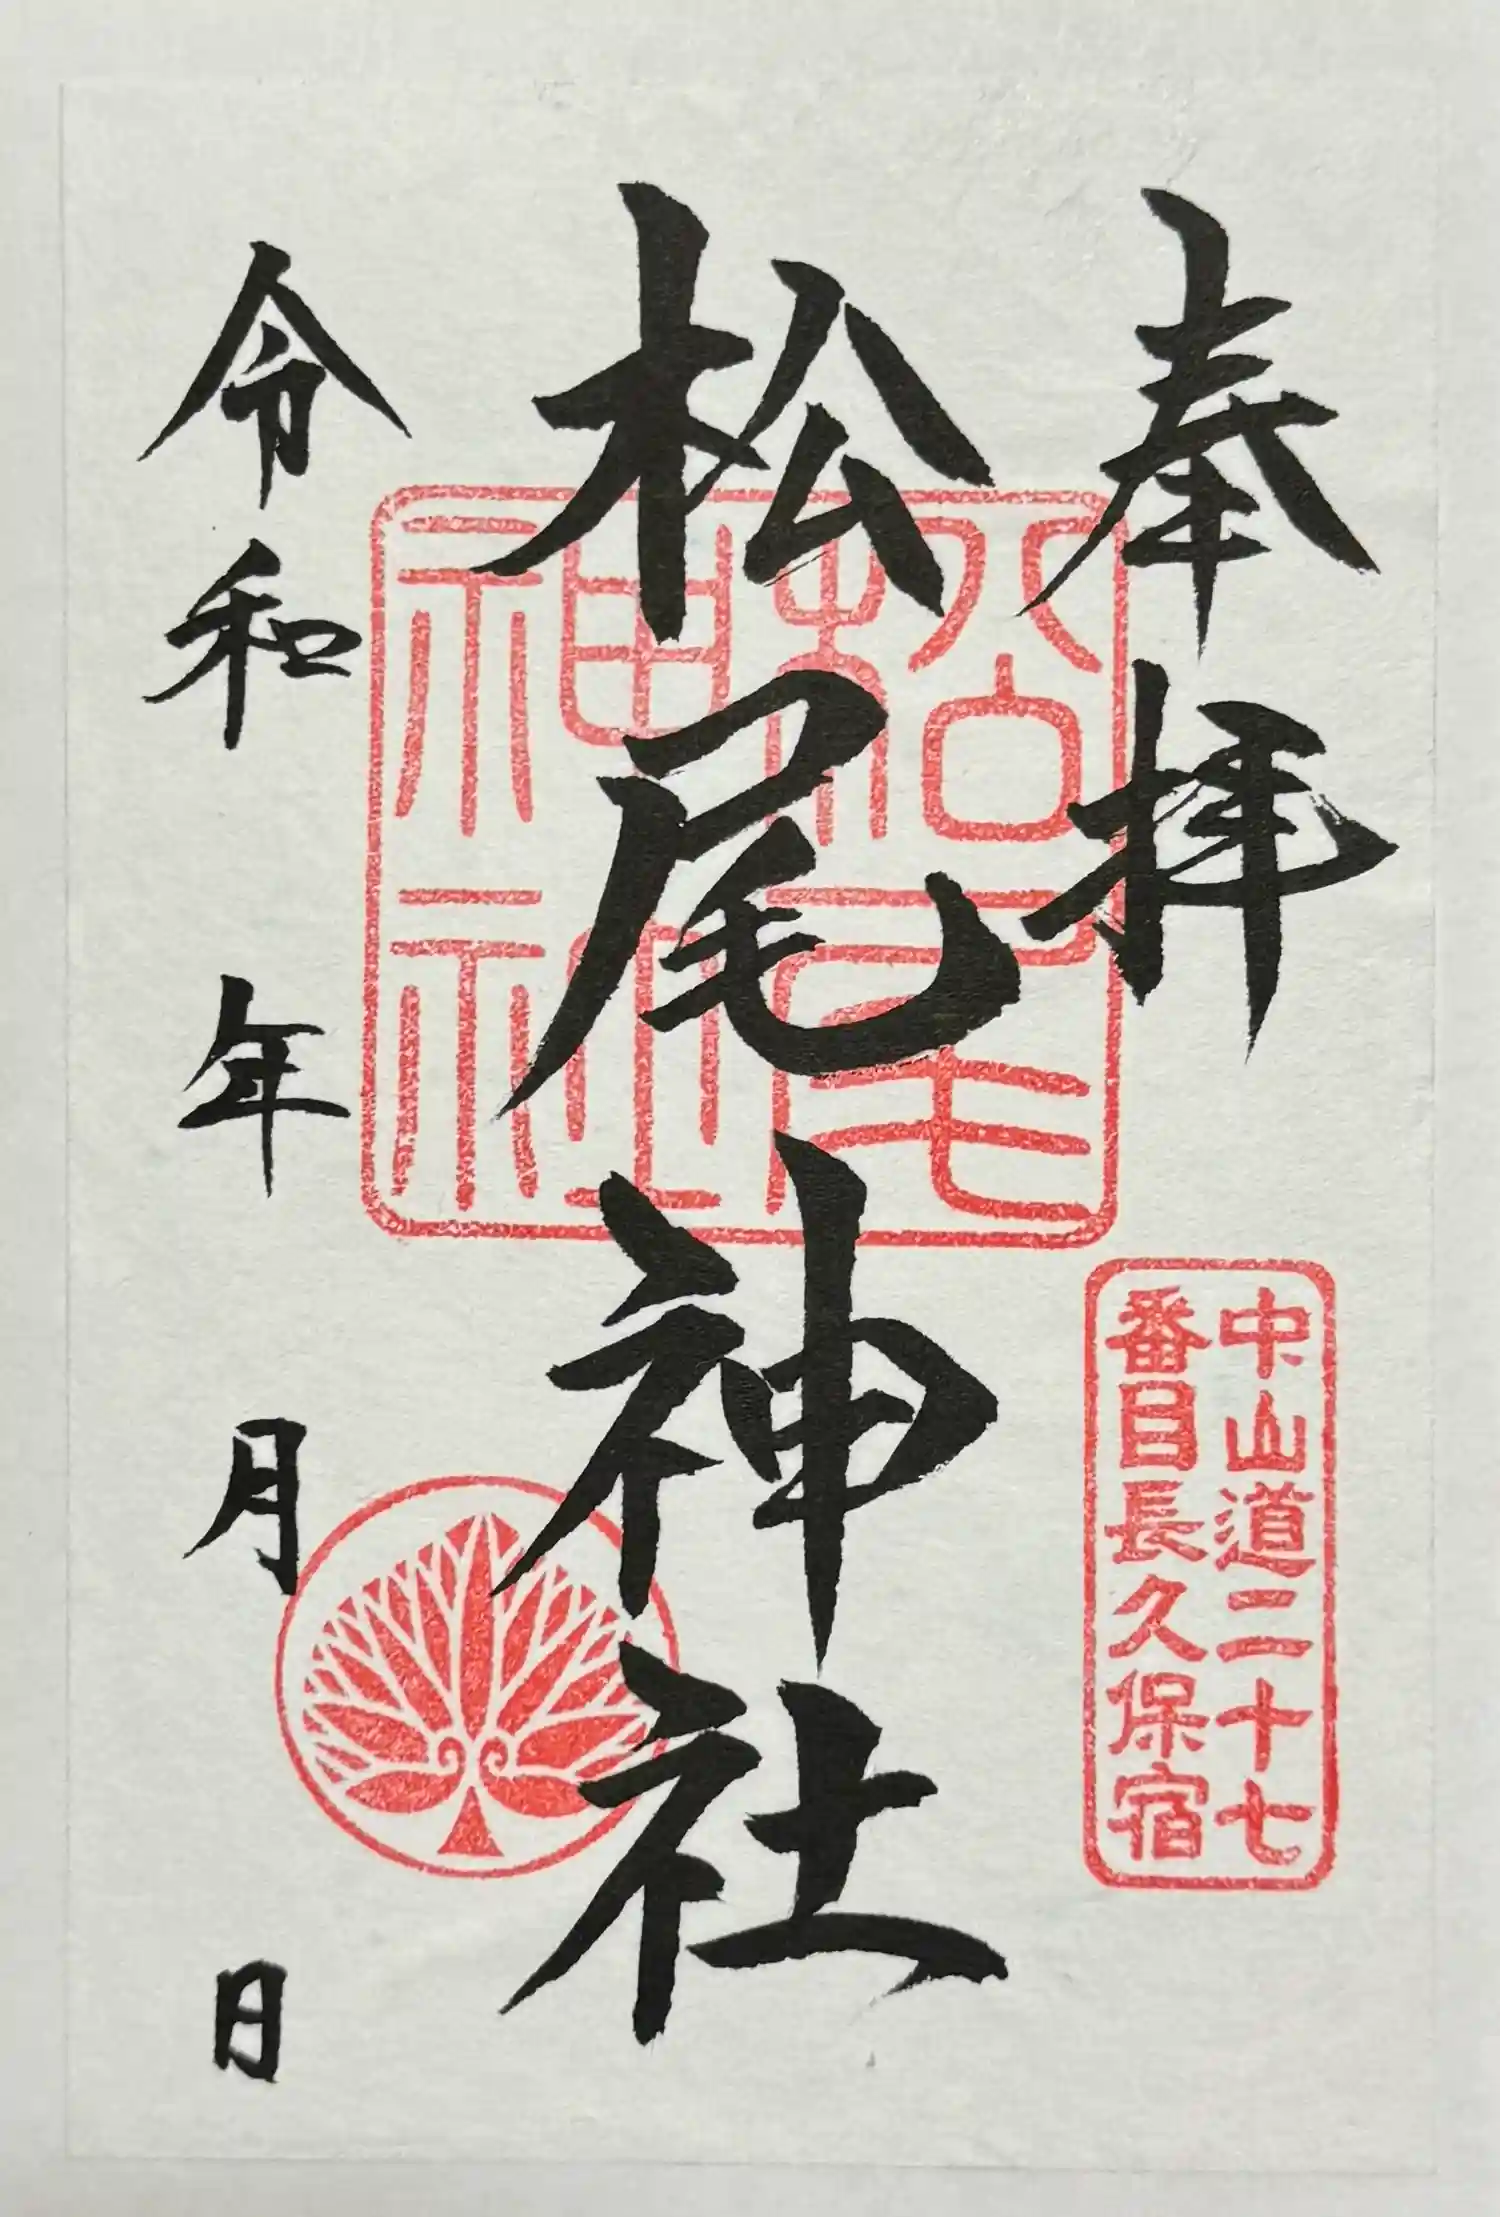 奉拝
中山道二十七
番目長久保宿
松尾神社
松尾
神社
令和 年 月 日